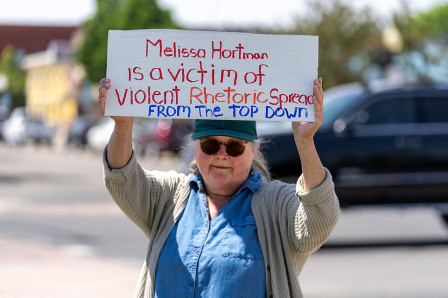 Melissa Hortman
is a victim of
violent Rhetoric Spread
FROM THE TOP DOWN